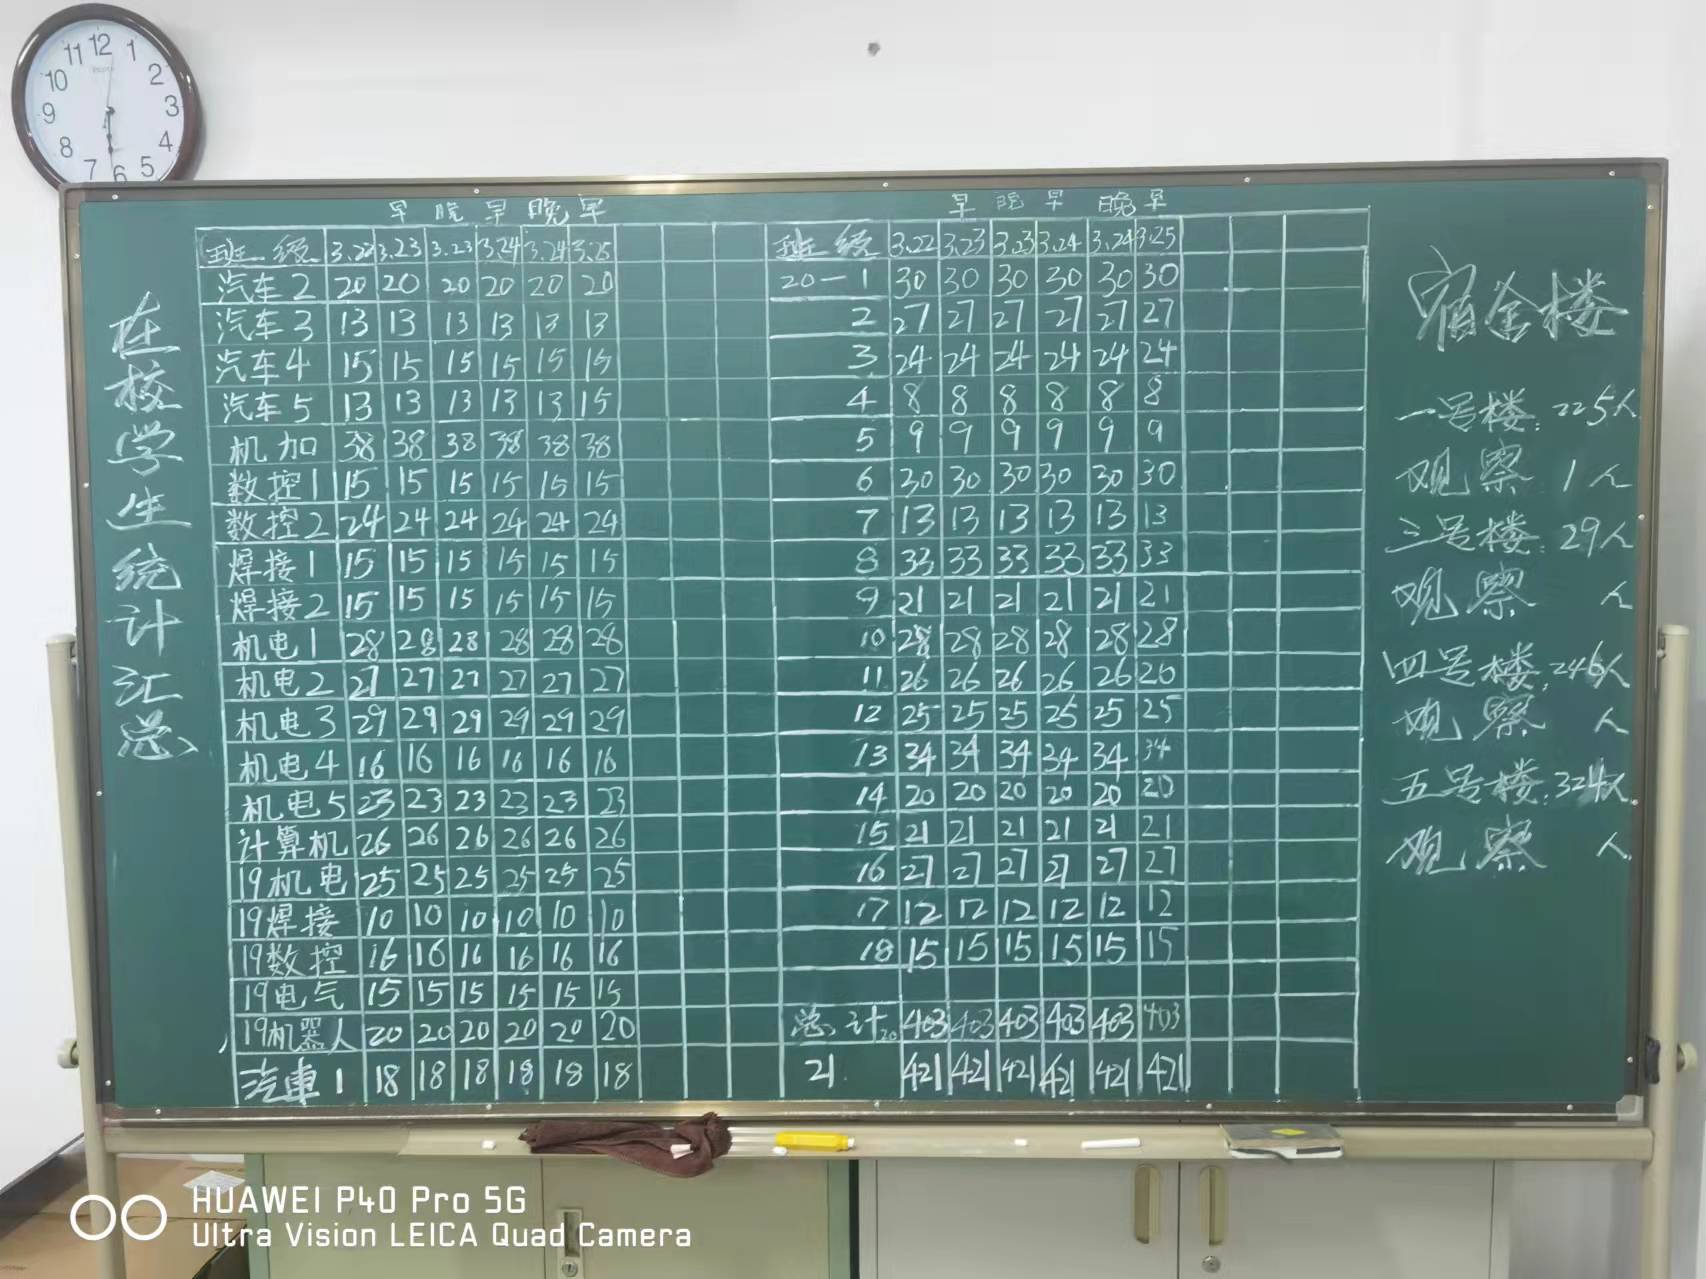 12
11 1
10 2
9 3
8 4
7 6 5
在校学生统计汇总
早 晚 早 晚 早
班级 3.22 3.23 3.23 3.24 3.24 3.25
汽车2 20 20 20 20 20 20
汽车3 13 13 13 13 13 13
汽车4 15 15 15 15 15 15
汽车5 13 13 13 13 13 15
机加 38 38 38 38 38 38
数控1 15 15 15 15 15 15
数控2 24 24 24 24 24 24
焊接1 15 15 15 15 15 15
焊接2 15 15 15 15 15 15
机电1 28 28 28 28 28 28
机电2 27 27 27 27 27 27
机电3 29 29 29 29 29 29
机电4 16 16 16 16 16 16
机电5 23 23 23 23 23 23
计算机 26 26 26 26 26 26
19机电 25 25 25 25 25 25
19焊接 10 10 10 10 10 10
19数控 16 16 16 16 16 16
19电气 15 15 15 15 15 15
19机器人 20 20 20 20 20 20
汽車1 18 18 18 18 18 18
早 晚 早 晚 早
班级 3.22 3.23 3.23 3.24 3.24 3.25
20-1 30 30 30 30 30 30
2 27 27 27 27 27 27
3 24 24 24 24 24 24
4 8 8 8 8 8 8
5 9 9 9 9 9 9
6 30 30 30 30 30 30
7 13 13 13 13 13 13
8 33 33 33 33 33 33
9 21 21 21 21 21 21
10 28 28 28 28 28 28
11 26 26 26 26 26 26
12 25 25 25 25 25 25
13 34 34 34 34 34 34
14 20 20 20 20 20 20
15 21 21 21 21 21 21
16 27 27 27 27 27 27
17 12 12 12 12 12 12
18 15 15 15 15 15 15
总计20 403 403 403 403 403 403
21 421 421 421 421 421 421
宿舍楼
一号楼:225人
观察 1人
三号楼:29人
观察 人
四号楼:246人
观察 人
五号楼:324人
观察 人
HUAWEI P40 Pro 5G
Ultra Vision LEICA Quad Camera